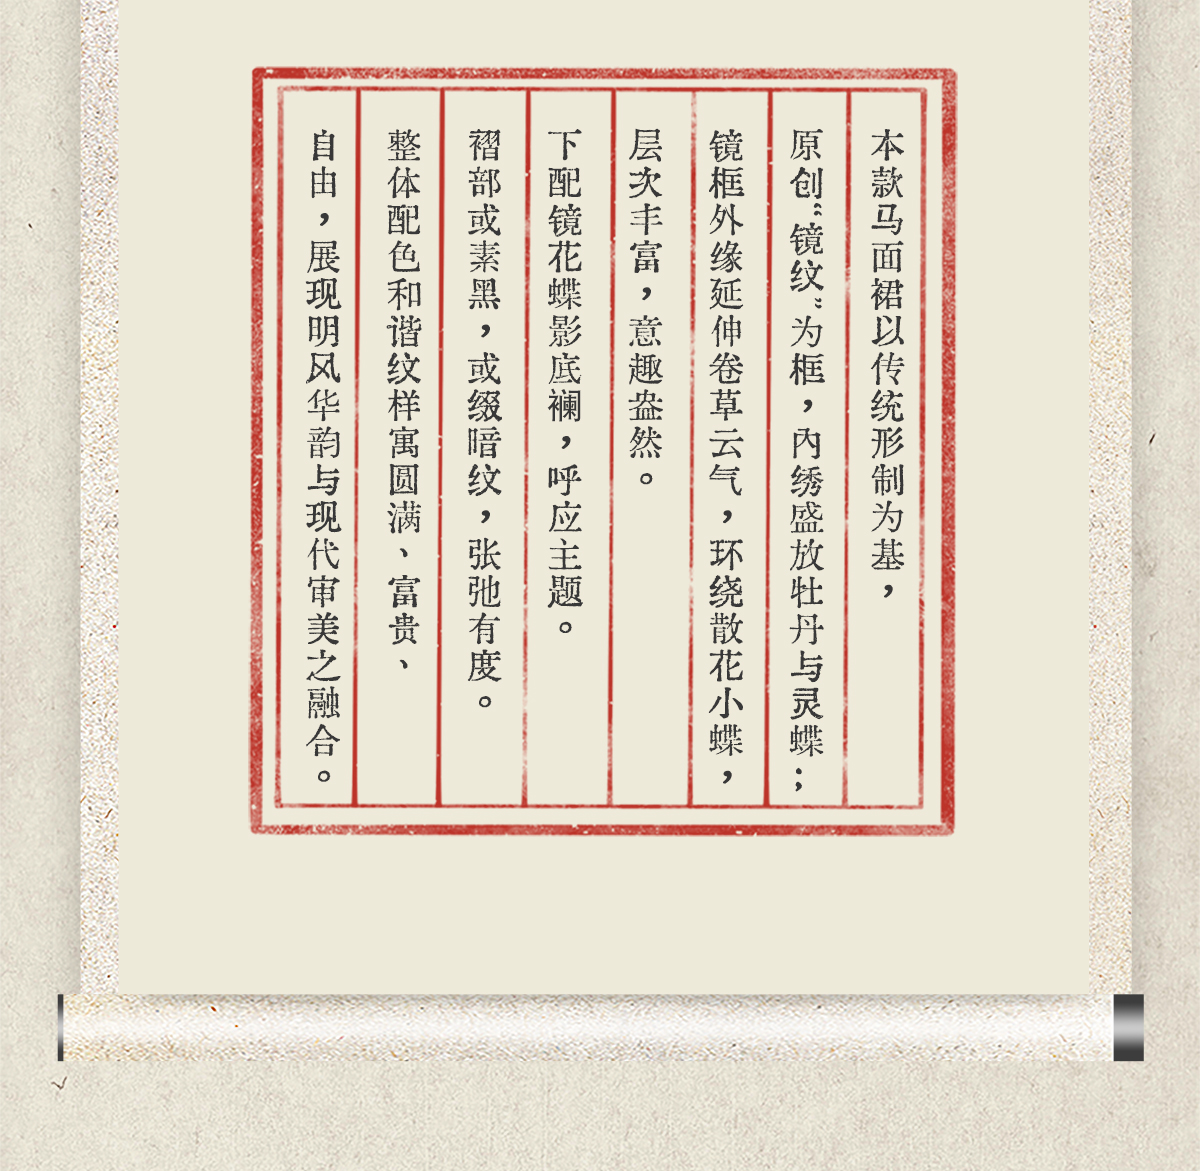 本款马面裙以传统形制为基，
原创“镜纹”为框，内绣盛放牡丹与灵蝶；
镜框外缘延伸卷草云气，环绕散花小蝶，
层次丰富，意趣盎然。
下配镜花蝶影底襕，呼应主题。
褶部或素黑，或缀暗纹，张弛有度。
整体配色和谐纹样寓圆满、富贵、
自由，展现明风华韵与现代审美之融合。